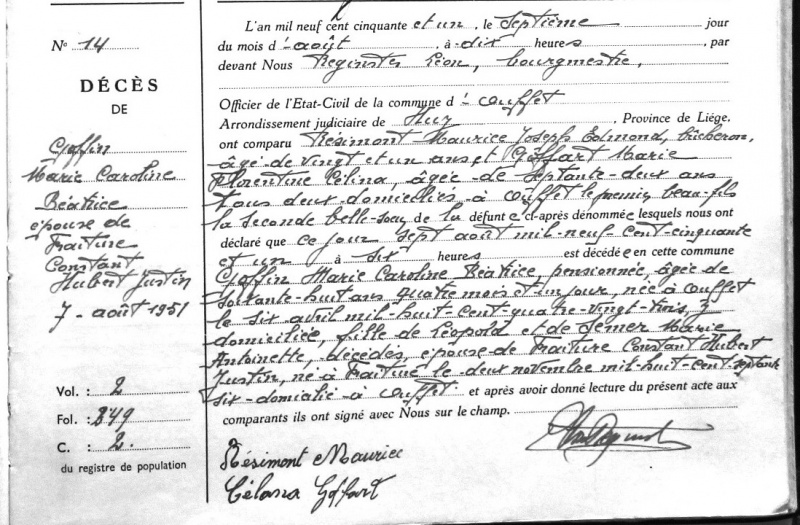 N° 14
DÉCÈS
DE
Goffin
Marie Caroline
Béatrice
épouse de
Fraiture
Constant
Hubert Justin
7 - août 1951
Vol. : 2
Fol. : 249
C. : 2.
du registre de population
L'an mil neuf cent cinquante et un, le septième jour
du mois d'-août, à-dix heures, par
devant Nous Reginster Léon, bourgmestre,
Officier de l'Etat-Civil de la commune d'-Ouffet
Arrondissement judiciaire de Huy, Province de Liége,
ont comparu Résimont Maurice Joseph Edmond, bûcheron,
âgé-de vingt et un ans et Goffart Marie
Florentine Célina, âgée-de septante-deux ans
tous deux-domiciliés-à Ouffet le premier beau-fils
la seconde belle-soeur de la défunte ci-après dénommée lesquels nous ont
déclaré que ce jour sept août mil-neuf-cent-cinquante
et un à six heures est décédée en cette commune
Goffin Marie Caroline Béatrice, pensionnée, âgée de
soixante-huit ans quatre mois et un jour, née à Ouffet
le six avril mil-huit-cent-quatre-vingt-trois, y
domiciliée, fille de Léopold et de Demer Marie
Antoinette, décédés, épouse de Fraiture Constant Hubert
Justin, né à Fraiture le deux novembre mil-huit-cent-septante
six-domicilié-à Ouffet. et après avoir donné lecture du présent acte aux
comparants ils ont signé avec Nous sur le champ.
Résimont Maurice
Célina Goffart